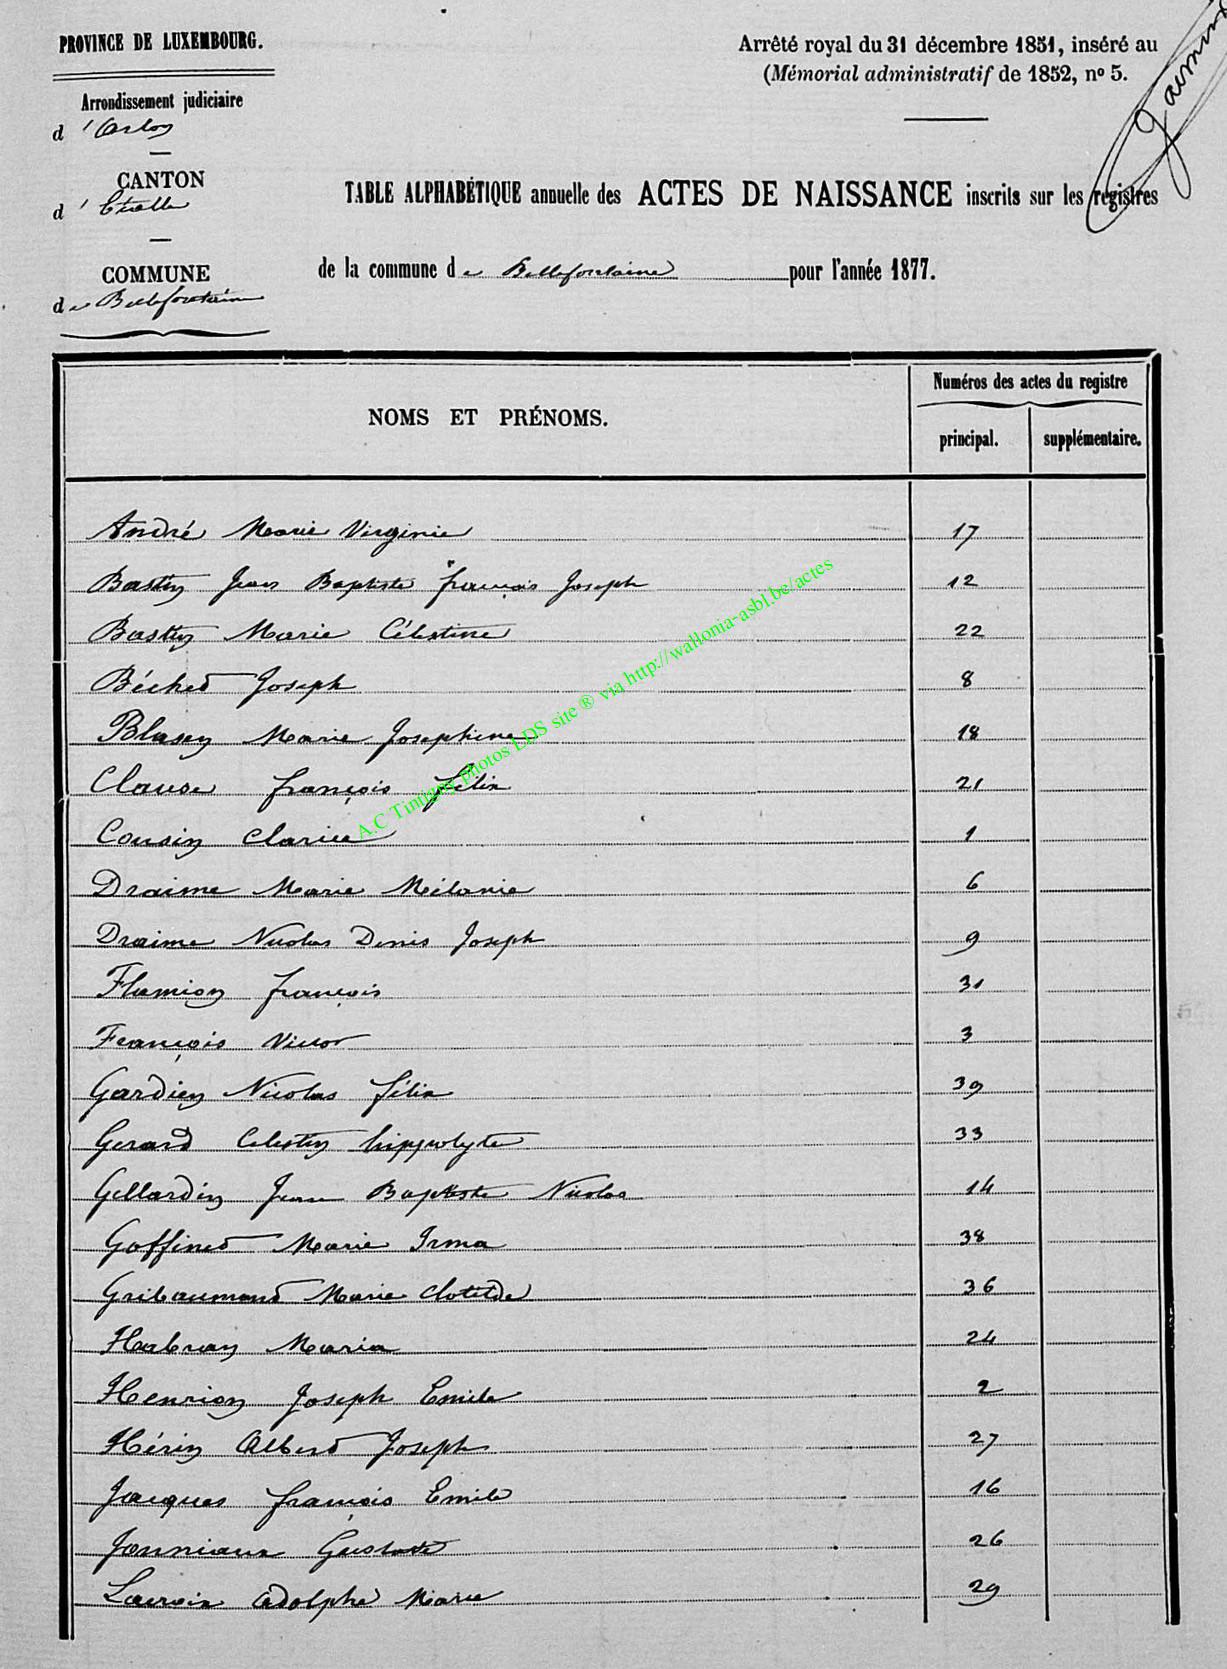 PROVINCE DE LUXEMBOURG.
Arrêté royal du 31 décembre 1851, inséré au
(Mémorial administratif de 1852, no 5.
Arrondissement judiciaire
d 'Arlon
CANTON
d 'Etalle
TABLE ALPHABÉTIQUE annuelle des ACTES DE NAISSANCE inscrits sur les registres
COMMUNE
de Bellefontaine
de la commune de Bellefontaine pour l'année 1877.
NOMS ET PRÉNOMS.
Numéros des actes du registre
principal. supplémentaire.
André Marie Virginie 17
Bastin Jean Baptiste françois Joseph 12
Bastin Marie Célestine 22
Béchet Joseph 8
Blasen Marie Josephine 18
Clause françois félix 21
Cousin Clarice 1
Draime Marie Mélanie 6
Draime Nicolas Denis Joseph 9
Flamion françois 31
François Victor 3
Gardien Nicolas félix 39
Gerard Celestin hippolyte 33
Gillardin Jean Baptiste Nicolas 14
Goffinet Marie Irma 38
Gribaumont Marie Clotilde 36
Habran Maria 24
Henrion Joseph Emile 2
Hérin Albert Joseph 27
Jacques françois Emile 16
Jonniaux Gustave 26
Lacroix Adolphe Marie 29
A.C Tintigny photos LDS site ® via http://wallonia-asbl.be/actes